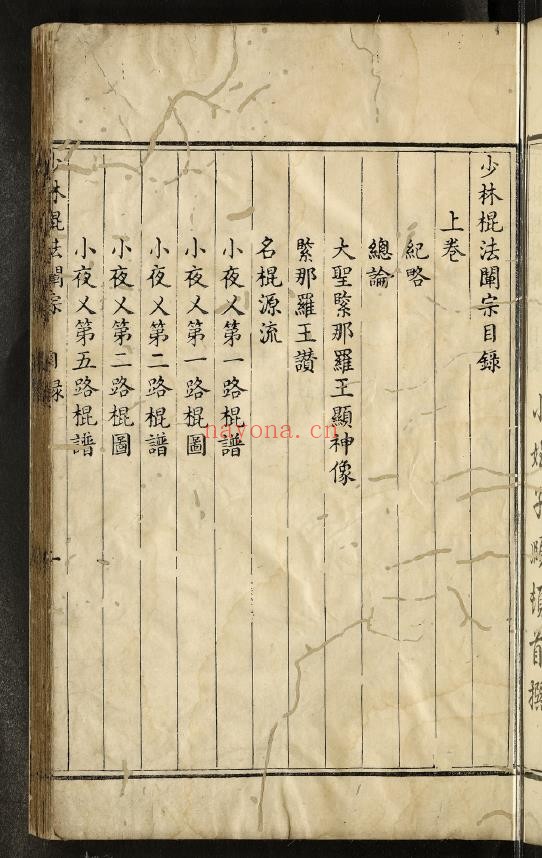 少林棍法闡宗目錄
上卷
紀略
總論
大聖緊那羅王顯神像
緊那羅王讚
名棍源流
小夜乂第一路棍譜
小夜乂第一路棍圖
小夜乂第二路棍譜
小夜乂第二路棍圖
小夜乂第五路棍譜
少林棍法闡宗
目錄
一
nayona.cn
頓首撰